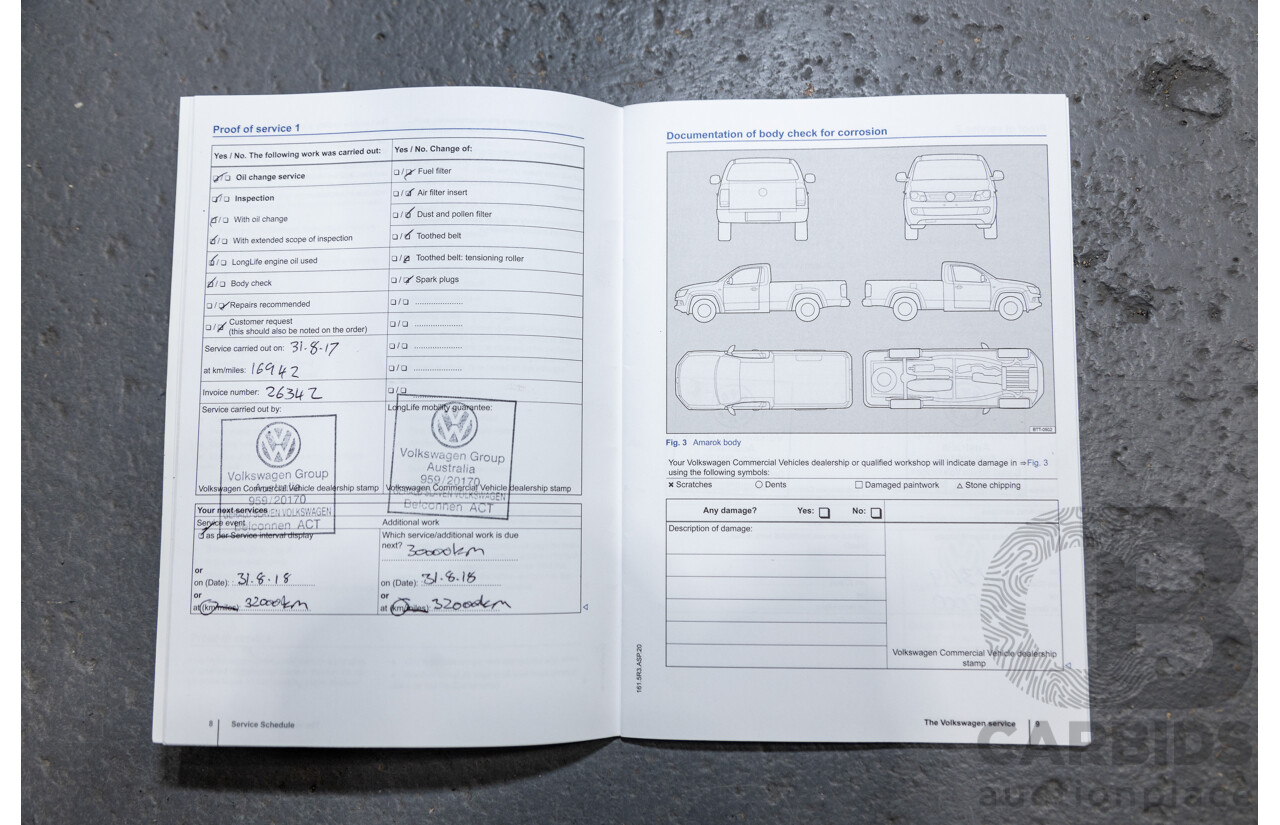 Proof of service 1
Yes / No. The following work was carried out:
Yes / No. Change of:
Oil change service
Fuel filter
Inspection
Air filter insert
With oil change
Dust and pollen filter
With extended scope of inspection
Toothed belt
LongLife engine oil used
Toothed belt: tensioning roller
Body check
Spark plugs
Repairs recommended
Customer request
(this should also be noted on the order)
Service carried out on: 31-8-17
at km/miles: 16942
Invoice number: 26342
Service carried out by:
LongLife mobility guarantee:
Volkswagen Group
959/20170
VOLKSWAGEN
Belconnen ACT
Volkswagen Group
Australia
959/20170
VOLKSWAGEN
Belconnen ACT
Volkswagen Commercial Vehicle dealership stamp
Volkswagen Commercial Vehicle dealership stamp
Your next services
Service event
Additional work
as per Service interval display
Which service/additional work is due
next? 30000km
or
on (Date): 31.8.18
on (Date): 31.8.18
or
or
at (km/miles): 32000km
at (km/miles): 32000km
8 Service Schedule
Documentation of body check for corrosion
BTT-0502
Fig. 3 Amarok body
Your Volkswagen Commercial Vehicles dealership or qualified workshop will indicate damage in ⇒Fig. 3
using the following symbols:
× Scratches
○ Dents
□ Damaged paintwork
△ Stone chipping
Any damage? Yes: No:
Description of damage:
Volkswagen Commercial Vehicle dealership
stamp
161.5R3.ASP.20
The Volkswagen service 9
CB
CARBIDS
auctionplace